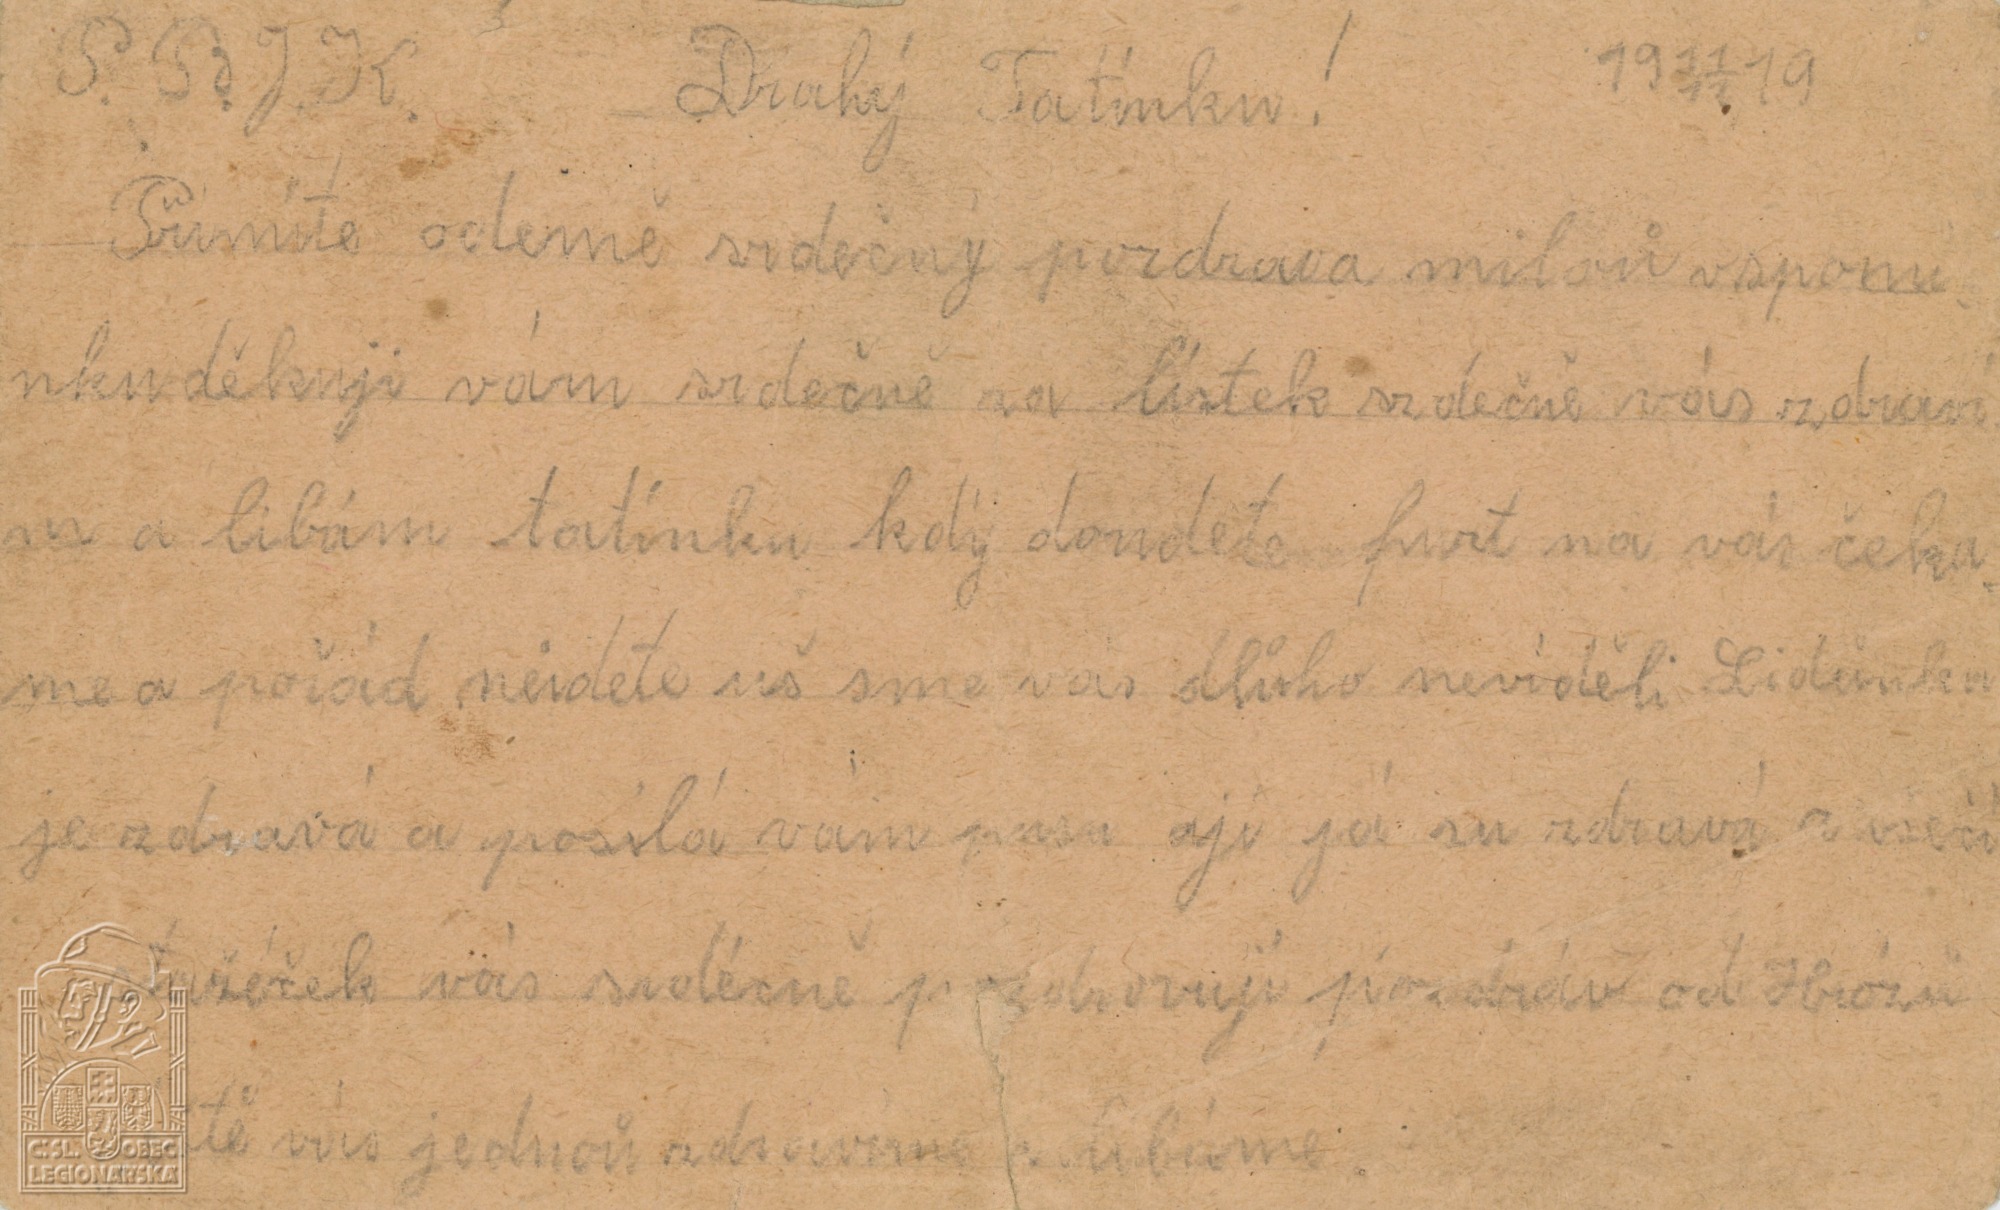 P. B. J. K. Drahý Tatínku! 19 11/11 19
Příměte odemě srdečný pozdrava milou vspomí-
nkuděkuji vám srdečně za lístek srdečně vás zdraví
m a líbám tatínku kdý dondete furt na vás čeka-
me a pořád neidete uš sme vás dlůho neviděli Lidunka
je zdravá a posílá vám pusu aji já su zdravá
stařéček vás srdéčně pozdrovují pozdráv od
vás jednoů zdravíme a líbáme.
ČSL. OBEC
LEGIONÁŘSKÁ